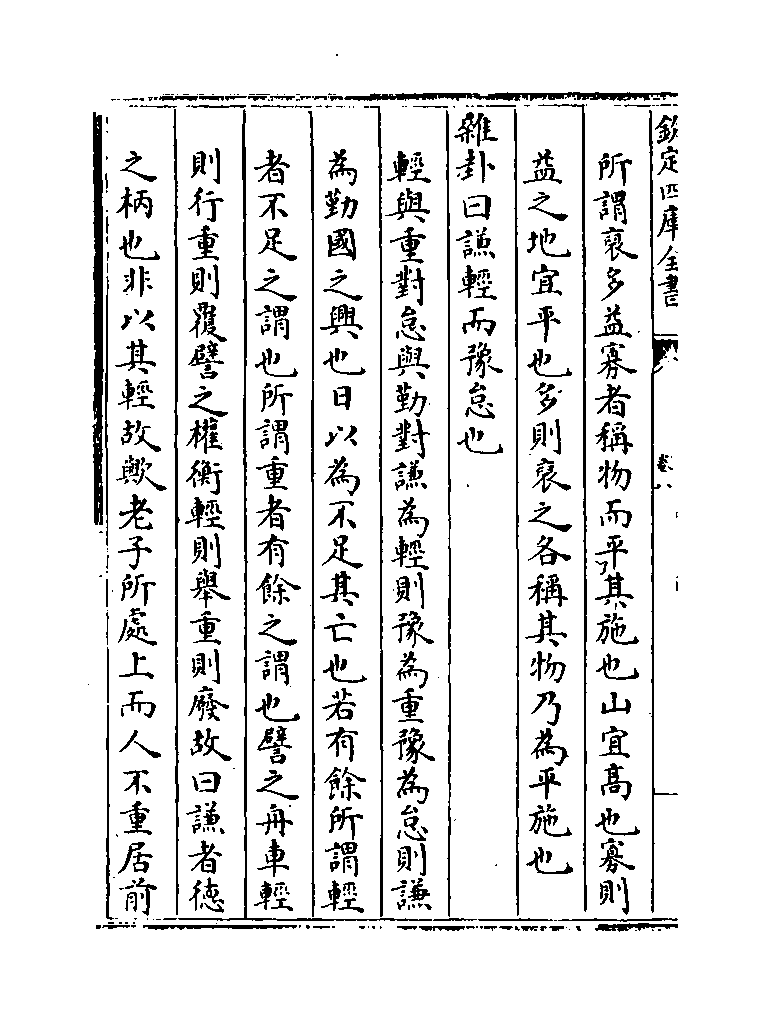 欽定四庫全書
卷八
所謂裒多益寡者稱物而平其施也山宜髙也寡則
益之地宜平也多則裒之各稱其物乃為平施也
雜卦曰謙輕而豫怠也
輕與重對怠與勤對謙為輕則豫為重豫為怠則謙
為勤國之興也日以為不足其亡也若有餘所謂輕
者不足之謂也所謂重者有餘之謂也譬之舟車輕
則行重則覆譬之權衡輕則舉重則廢故曰謙者徳
之柄也非以其輕故歟老子所處上而人不重居前